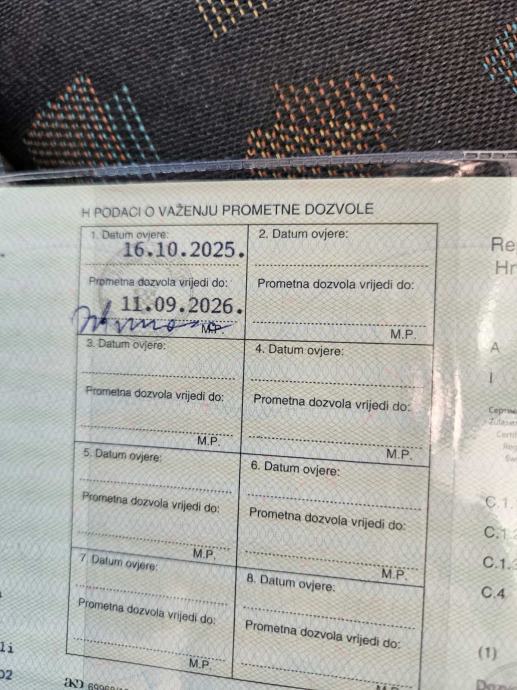 H PODACI O VAŽENJU PROMETNE DOZVOLE
1. Datum ovjere:
16.10.2025.
Prometna dozvola vrijedi do:
11.09.2026.
M.P.
2. Datum ovjere:
Prometna dozvola vrijedi do:
M.P.
3. Datum ovjere:
Prometna dozvola vrijedi do:
M.P.
4. Datum ovjere:
Prometna dozvola vrijedi do:
M.P.
5. Datum ovjere:
Prometna dozvola vrijedi do:
M.P.
6. Datum ovjere:
Prometna dozvola vrijedi do:
M.P.
7 Datum ovjere:
Prometna dozvola vrijedi do:
M.P.
8. Datum ovjere:
Prometna dozvola vrijedi do:
M.P.
Re
Hr
A
I
C.1.
C.1.2
C.1.3
C.4
(1)